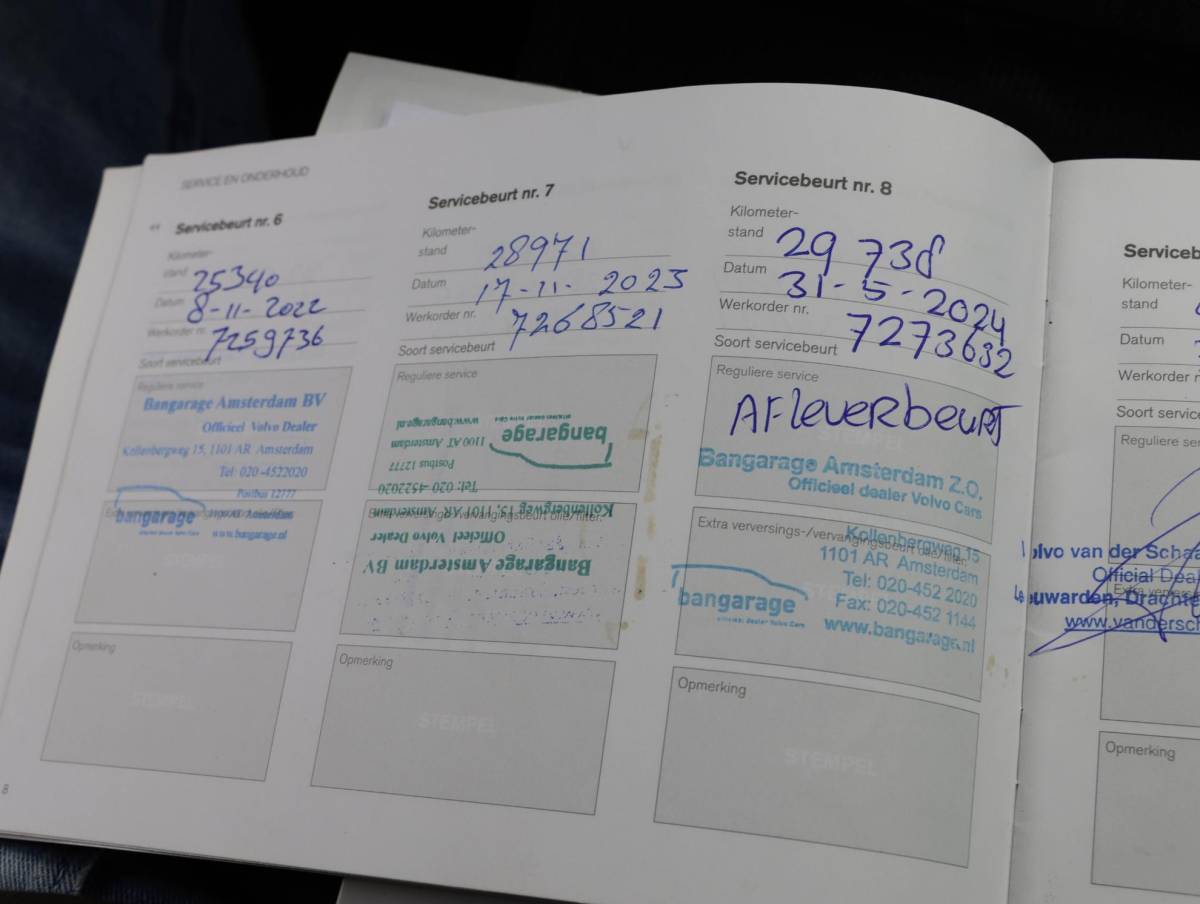 SERVICE EN ONDERHOUD
Servicebeurt nr. 6
Kilometer-
stand 25340
Datum 8-11-2022
Werkorder nr. 7259736
Soort servicebeurt
Reguliere service
Bangarage Amsterdam BV
Officieel Volvo Dealer
Kollenbergweg 15, 1101 AR Amsterdam
Tel: 020-4522020
Postbus 12777
bangarage 1100 AT Amsterdam
www.bangarage.nl
Opmerking
STEMPEL
8
Servicebeurt nr. 7
Kilometer-
stand 28971
Datum 17-11-2023
Werkorder nr. 7268521
Soort servicebeurt
Reguliere service
Bangarage Amsterdam BV
Officieel Volvo Dealer
Kollenbergweg 15, 1101 AR Amsterdam
Tel: 020-4522020
Postbus 12777
1100 AT Amsterdam
www.bangarage.nl
bangarage
Extra verversings-/vervangingsbeurt olie/filter:
Opmerking
STEMPEL
Servicebeurt nr. 8
Kilometer-
stand 29738
Datum 31-5-2024
Werkorder nr. 7273632
Soort servicebeurt
Reguliere service
AFleverbeurt
STEMPEL
Bangarage Amsterdam Z.O.
Officieel dealer Volvo Cars
Extra verversings-/vervangingsbeurt olie/filter:
Kollenbergweg 15
1101 AR Amsterdam
Tel: 020-452 2020
Fax: 020-452 1144
www.bangarage.nl
bangarage
officieel dealer Volvo Cars
Opmerking
STEMPEL
Serviceb
Kilometer-
stand
Datum
Werkorder n
Soort service
Reguliere serv
olvo van der Schaa
Official Deal
Leeuwarden, Drachte
www.vandersch
Opmerking